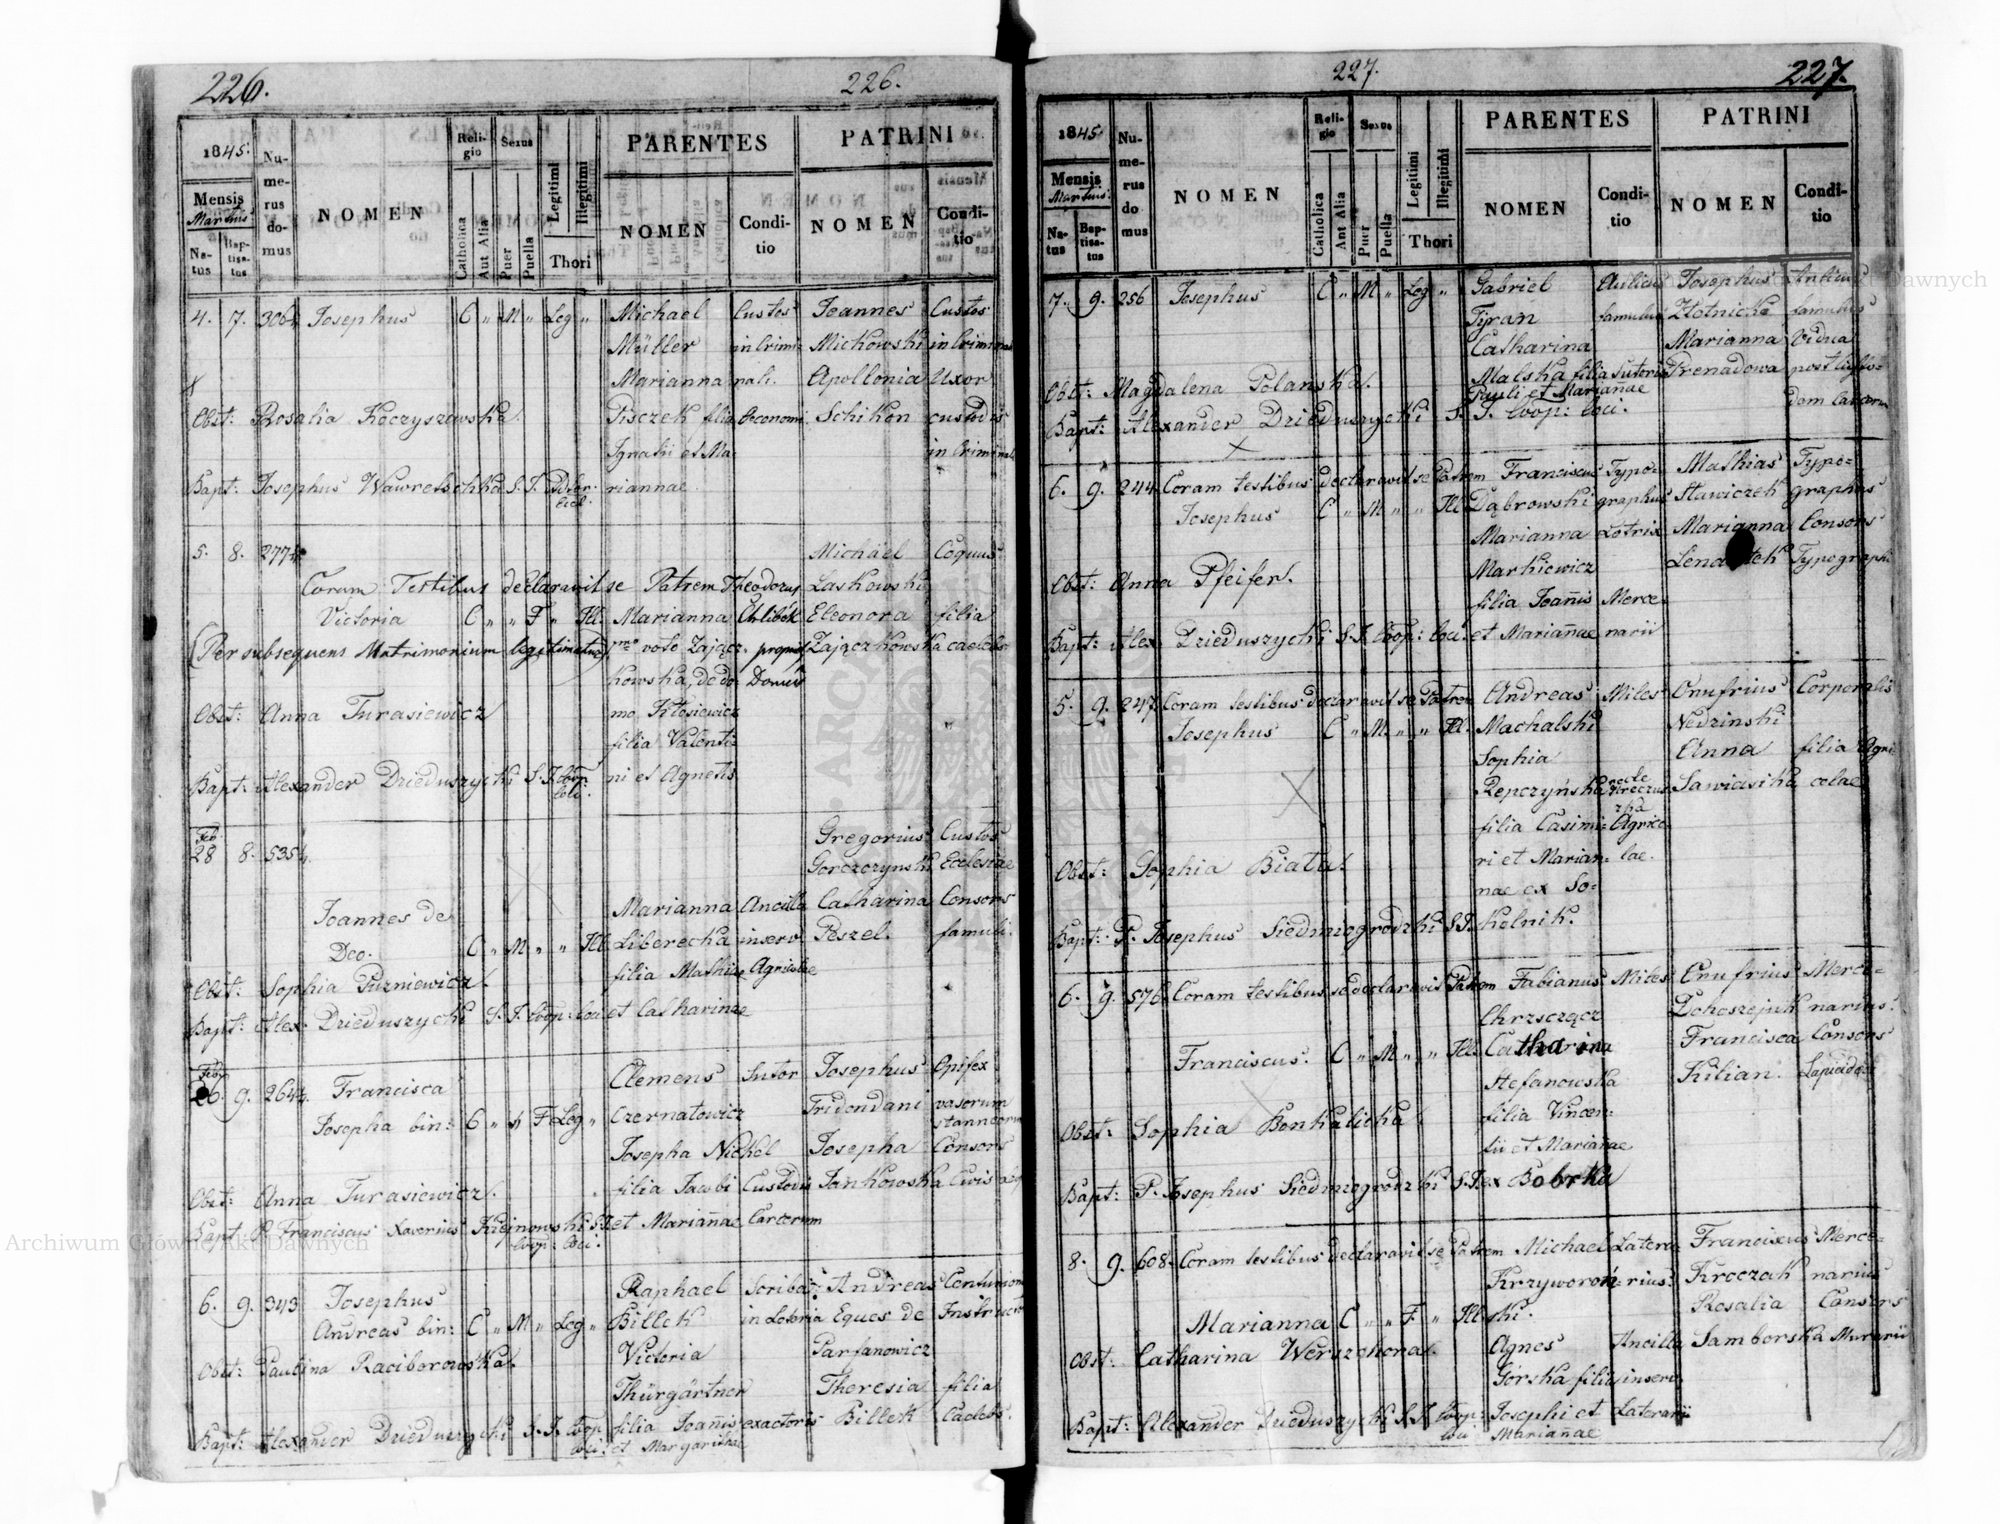 226.
226.
1845.
Mensis
Martius
Natus
Baptisatus
Numerus domus
NOMEN
Religio
Catholica
Aut Alia
Sexus
Puer
Puella
Legitimi
Illegitimi
Thori
PARENTES
NOMEN
Conditio
PATRINI
NOMEN
Conditio
4. 7. 306 4/4 Josephus C " M " Leg " Michael Custos Joannes Custos
Müller in Crimi= Michowski in Criminali
Marianna nali. Apollonia Uxor
Obst: Rosalia Koczyszowska. Pisczek filia Oeconomi Schikon custodis
Ignatii et Ma- in Criminali
Bapt: Josephus Wawretschka S. J. riannae
5. 8. 277 4/4 Michäel Coquus
Coram Testibus declaravit se Patrem Theodorus Laskowski
Victoria C " " F " Ill. Marianna Chlibek Eleonora filia
(Per subsequens Matrimonium legitimatur) 1mo voto Zającz- Zajączkowska caelebs
kowska, de do- Domus
Obst: Anna Turasiewicz mo Kłosiewicz
filia Valenti-
Bapt: Alexander Dzieduszycki S. J. Coop: loci. ni et Agnetis
Feb. Gregorius Custos
28 8. 535 4/4 Gorczczynski Ecclesiae
Joannes de Marianna Ancilla Catharina Consors
Deo. C " M " " Ill. Liberecka inserv. Peszel. famuli.
Obst: Sophia Puzniewicz. filia Mathiae Agricolae
Bapt: Alex: Dzieduszycki S. J. Coop: loci et Catharinae
Feb.
26. 9. 264 4/4 Francisca Clemens Sutor Josephus Opifex
Josepha bin: C " " F Leg " Czernatowicz Tridondani vasorum
stanneorum
Josepha Nickel Josepha Consors
Obst: Anna Turasiewicz. filia Jacobi Custodis Jankowska Civis
Bapt: P. Franciscus Xaverius Kiejnowski S. J. Coop: loci. et Mariañae Carcerum
6. 9. 343 Josephus Raphael Scriba Andreas Centurion
Andreas bin: C " M " Leg " Billek in Loteria Eques de Instructor
Obst: Paulina Raciborowska. Victoria Parfanowicz
Thürgärtner Theresia filia
Bapt: Alexander Dzieduszycki S. J. Coop: loci. filia Joañis exactoris Billek Caelebs.
et Margarithae
227.
227.
1845.
Mensis
Martius
Natus
Baptisatus
Numerus domus
NOMEN
Religio
Catholica
Aut Alia
Sexus
Puer
Puella
Legitimi
Illegitimi
Thori
PARENTES
NOMEN
Conditio
PATRINI
NOMEN
Conditio
7. 9. 256 Josephus C " M " Leg " Gabriel Aulicus Josephus Aulicus
Tyran famulus Złotnicki famulus
Catharina Marianna Vidua
Obst: Magdalena Polanska. Malska filia Sutoris Prenadowa post
Pauli et Mariañae
Bapt: Alexander Dzieduszycki S. J. Coop: loci.
6. 9. 244 Coram testibus declaravit se Patrem Franciscus Typo= Mathias Typo=
Josephus C " M " " Ill. Dąbrowski graphus Stawiczek graphus
Marianna Lotrix Marianna Consors
Obst: Anna Pfeifer. Markiewicz Typographi
filia Joañis Merce-
Bapt: Alex Dzieduszycki S. J. Coop: loci. et Mariañae narii
5. 9. 247. Coram testibus declaravit se Patrem Andreas Miles Onufrius Corporalis
Josephus C " M " " Ill. Machalski Nedzinski
Sophia Anna filia Agri
Repczyńska recte Sawicsitka colae
filia Casimi- Agrico
Obst: Sophia Biała. ri et Marian- lae.
nae ex So-
Bapt: P. Josephus Siedmiogrodzki S. J. kolnik.
6. 9. 576. Coram testibus se declaravit Patrem Fabianus Miles Onufrius Merce-
Chrzscząez narius.
Franciscus. C " M " " Ill. Catharina Francisca Consors
Stefanowska Kilian. Lapicidae
Obst: Sophia Bonkalicka. filia Vincen-
tii et Mariañae
Bapt: P. Josephus Siedmiogrodzki S. J. ex Bobrka
8. 9. 608. Coram testibus declaravit se Patrem Michael Latera Franciscus Merce-
Krzyworoń- rius Kroczak narius
Marianna C " " F " Ill. ski. Rosalia Consors
Obst: Catharina Werszchona. Agnes Ancilla Samborska Murarii
Górska filia inserv.
Bapt: Alexander Dzieduszycki S. J. Coop: loci Josephi et Laterarii
Mariañae
Archiwum Główne Akt Dawnych